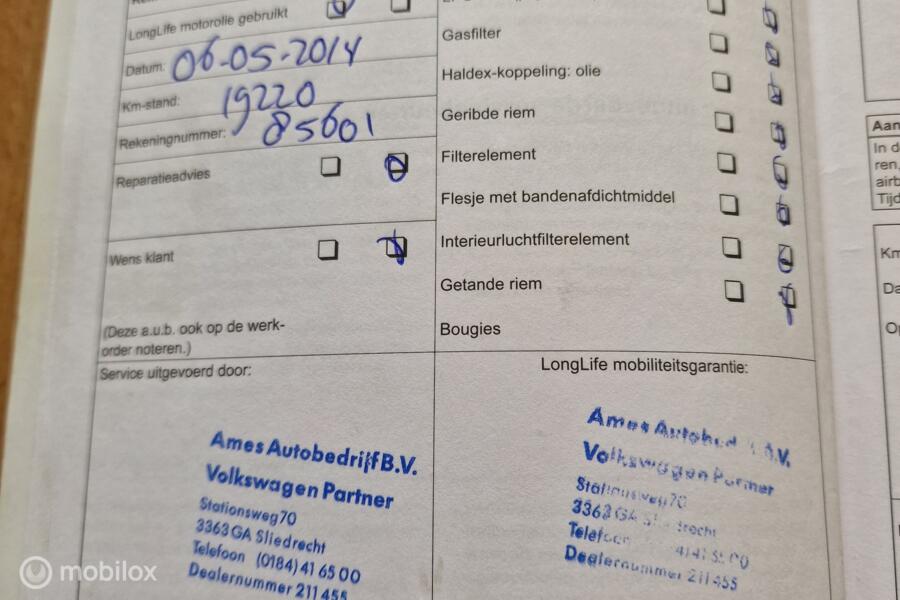 LongLife motorolie gebruikt
Datum: 06-05-2014
Km-stand: 19220
Rekeningnummer: 85601
Reparatieadvies
Wens klant
(Deze a.u.b. ook op de werk-
order noteren.)
Service uitgevoerd door:
Ames Autobedrijf B.V.
Volkswagen Partner
Stationsweg 70
3363 GA Sliedrecht
Telefoon (0184) 41 65 00
Dealernummer 211 455
Gasfilter
Haldex-koppeling: olie
Geribde riem
Filterelement
Flesje met bandenafdichtmiddel
Interieurluchtfilterelement
Getande riem
Bougies
LongLife mobiliteitsgarantie:
Ames Autobed B.V.
Volkswagen Partner
Stationsweg 70
3363 GA Sliedrecht
Telefoon 41 65 00
Dealernummer 211 455
Aan
In d
ren,
airb
Tijd
Km
Da
Op
mobilox